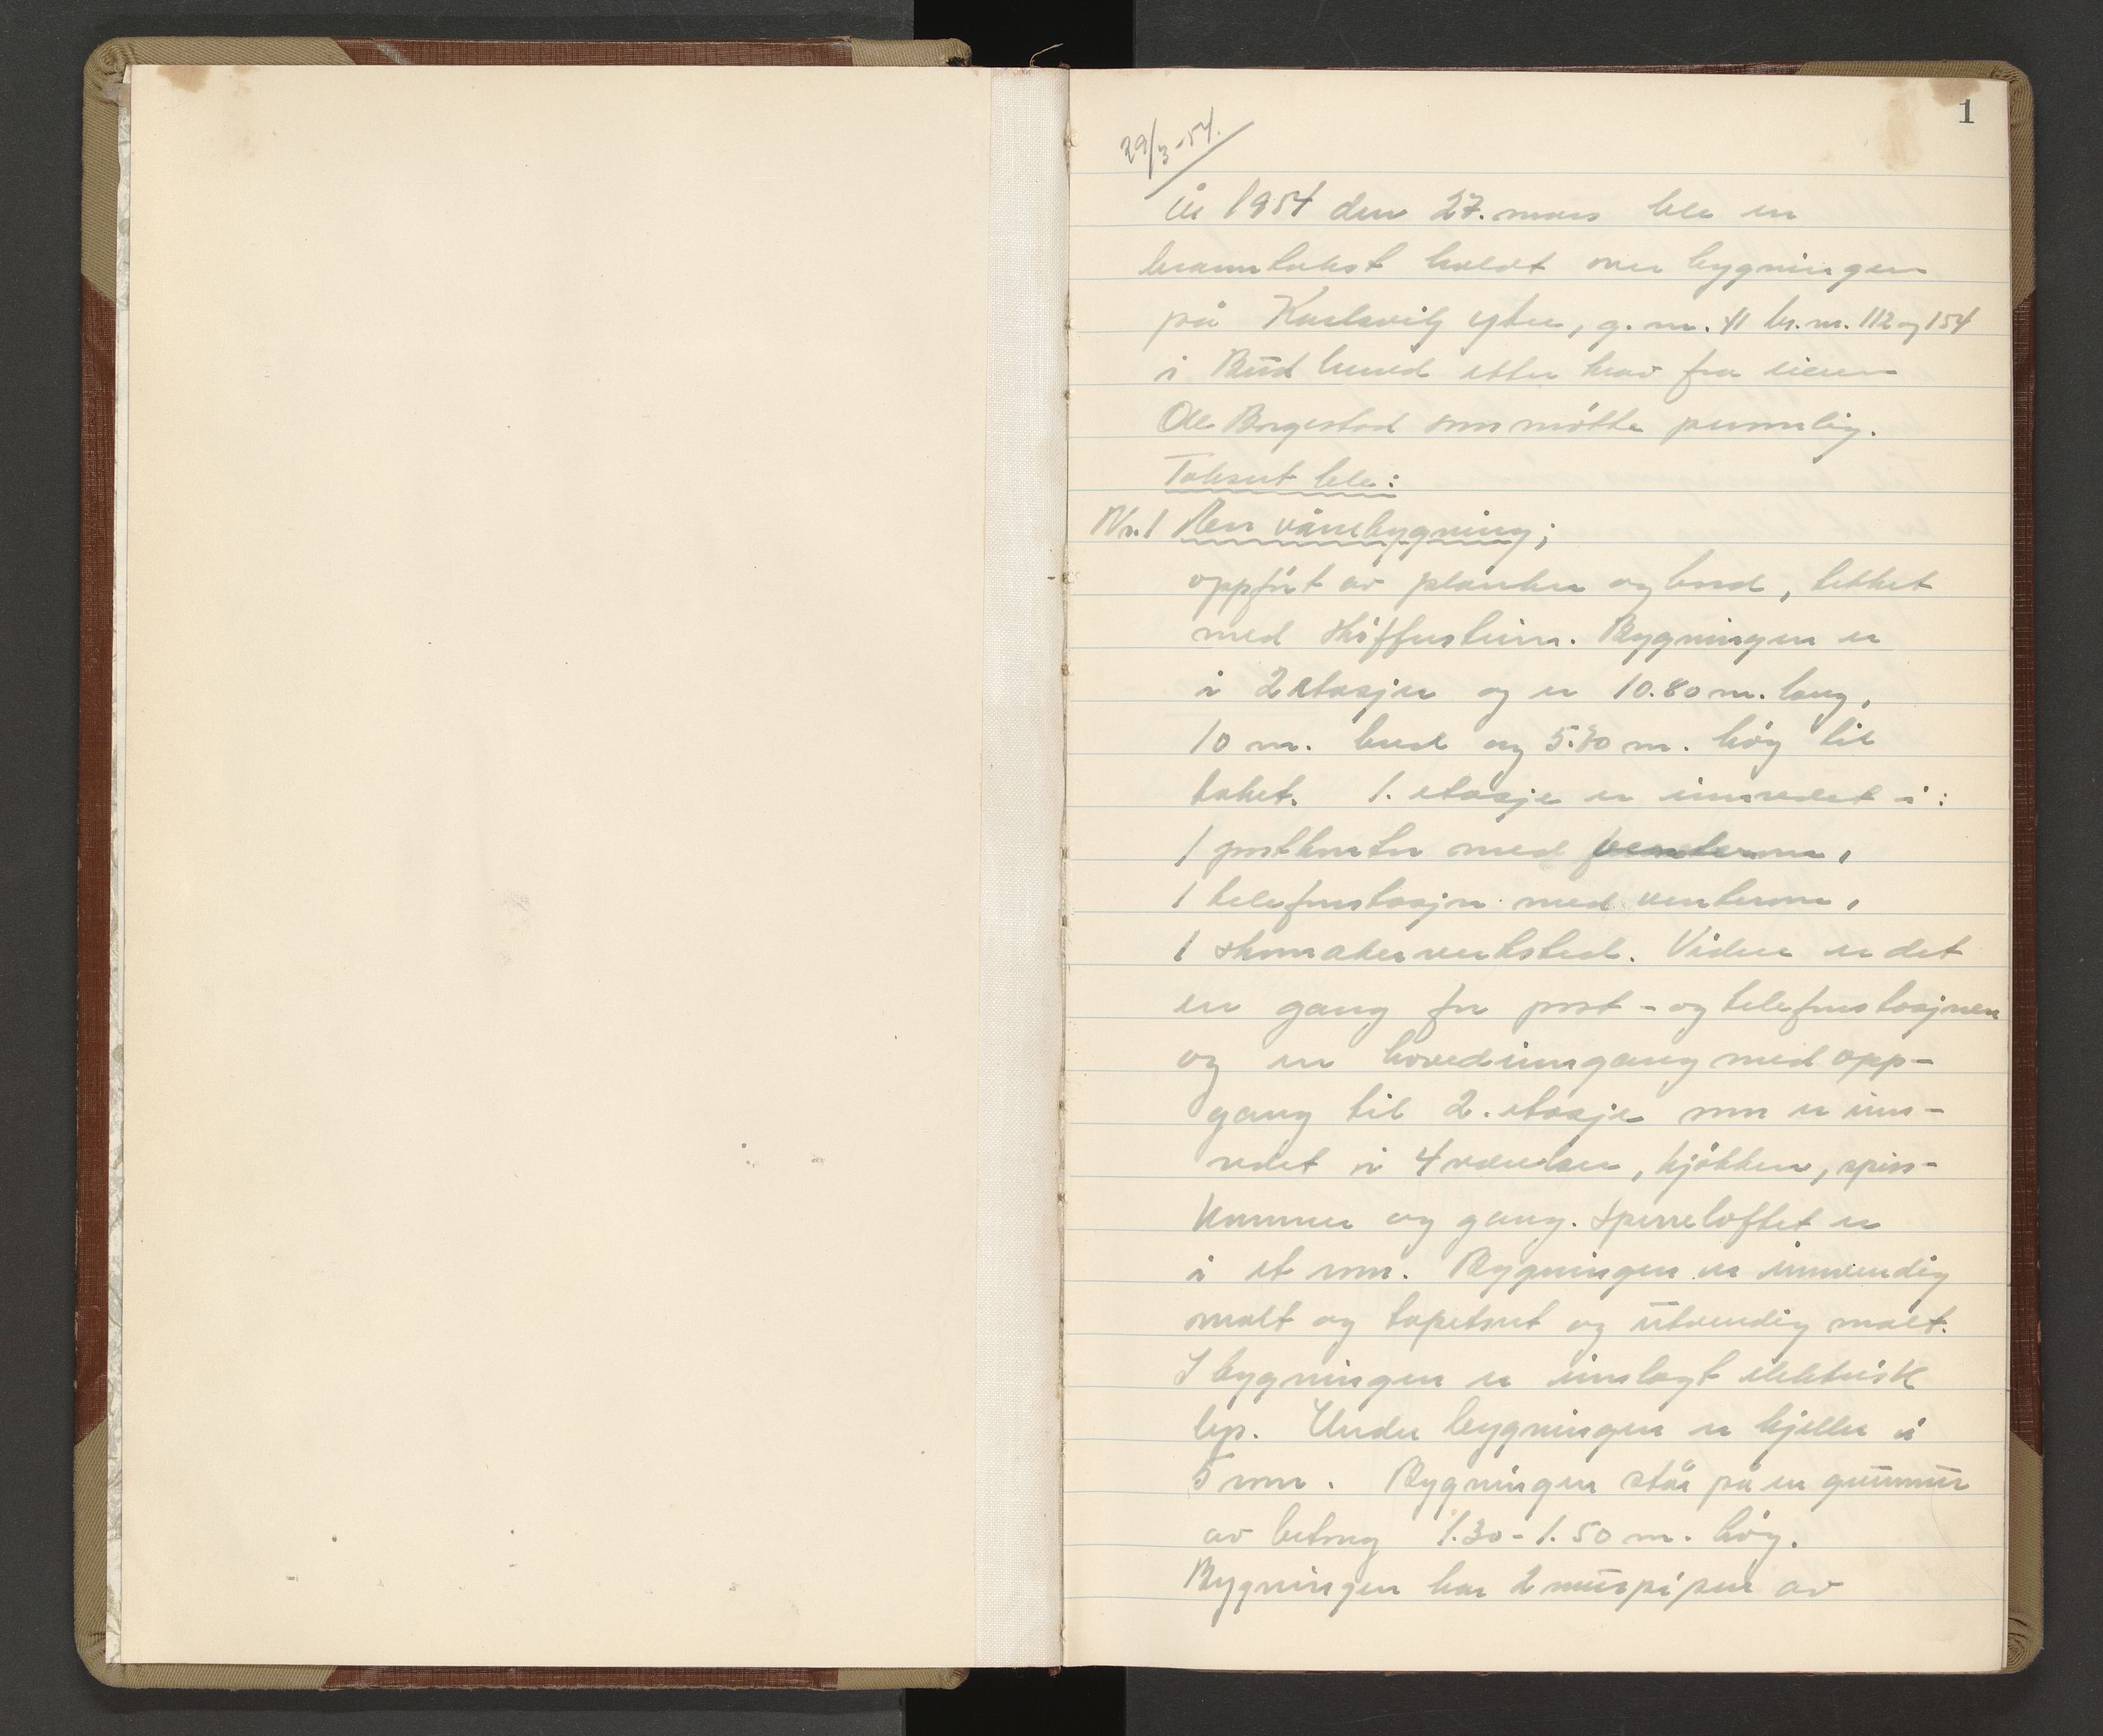 1
29/3-54.
År 1954 den 27. mars ble en
branntakst holdt over bygningen
på Karlsvik ytre, g. nr. 41 br. nr. 112 og 154
i Bud herred etter krav fra eieren
Ole Borgestad som møtte personlig.
Taksert ble:
Nr. 1 En våнebygning;
oppført av planker og bord, tekket
med skifferstein. Bygningen er
i 2 etasjer og er 10.80 m. lang,
10 m. bred og 5.70 m. høy til
taket. 1. etasje er innredet i:
1 postkontor med venterom,
1 telefonstasjon med venterom,
1 skomakerverksted. Videre er det
en gang for post- og telefonstasjonen
og en hovedinngang med opp-
gang til 2. etasje som er inn-
redet i 4 værelser, kjøkken, spis-
kammer og gang. Sperreloftet er
i et rom. Bygningen er innvendig
malt og tapetsert og utvendig malt.
I bygningen er innlagt elektrisk
lys. Under bygningen er kjeller i
5 rom. Bygningen står på en grunnmur
av betong 1.30 - 1.50 m. høy.
Bygningen har 2 murpiper av